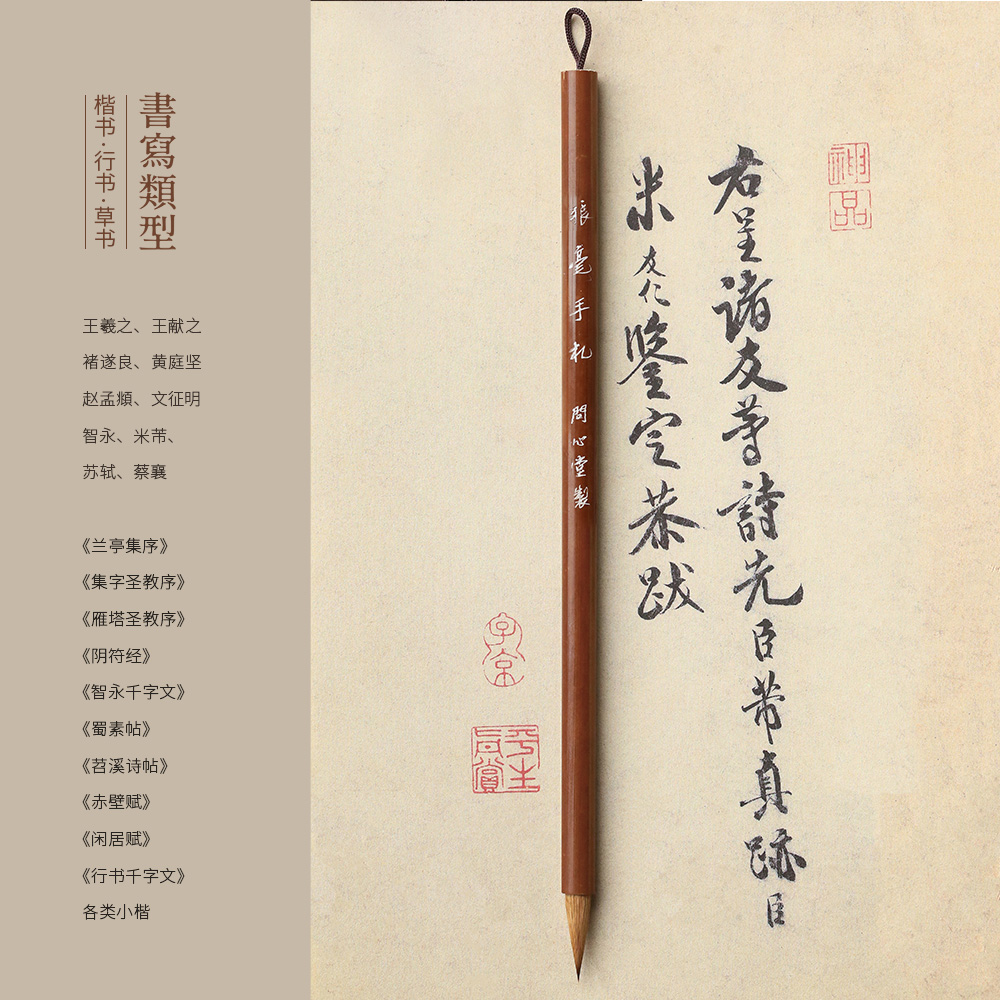 書寫類型
楷书·行书·草书
王羲之、王献之
褚遂良、黄庭坚
赵孟頫、文征明
智永、米芾、
苏轼、蔡襄
《兰亭集序》
《集字圣教序》
《雁塔圣教序》
《阴符经》
《智永千字文》
《蜀素帖》
《苕溪诗帖》
《赤壁赋》
《闲居赋》
《行书千字文》
各类小楷
狼毫手札 問心堂製
神品
右呈諸友等詩先臣芾真跡臣
米友仁鑒定恭跋
子京
平生真賞